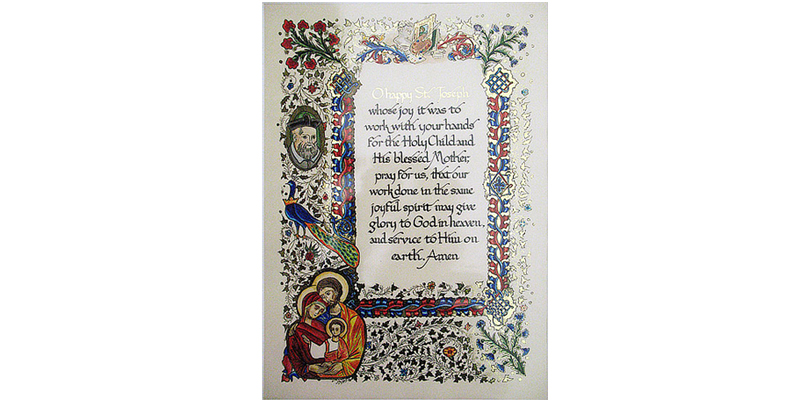 O happy St. Joseph
whose joy it was to
work with your hands
for the Holy Child and
His blessed Mother,
pray for us, that our
work done in the same
joyful spirit may give
glory to God in heaven,
and service to Him on
earth. Amen